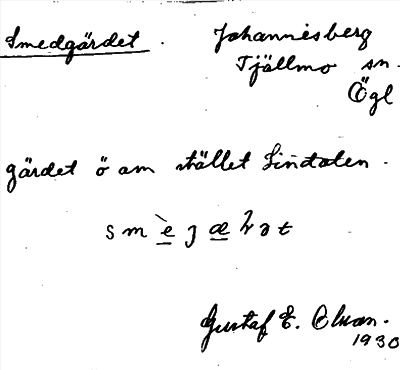 Smedgärdet. Johannisberg
Tjällmo sn.
Ögl
gärdet ö om stället Lindalen.
Gustaf E. Olson.
1930